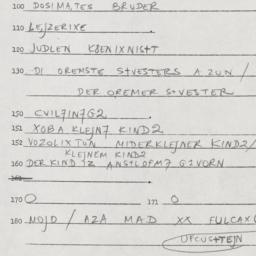 100 DOSIMATES BRUDER
110 LEJZERIXE
120 JUDLEN KBENIXNIStT
130 DI OREMSTE SVESTERS A ZUN /
DER OREMER SVESTER
150 CVIL7IN7G2
151 XOBA KLEJN7 KIND2
152 VOZOLIXTON MIDERKLEJNER KIND2/
KLEJNEM KIND2
160 DER KIND IZ ANSTLOFM7 G2VORN
161
170 O 171 O
180 MOJD / AZA MAD XX FULCAX
UPCUSHTEJN